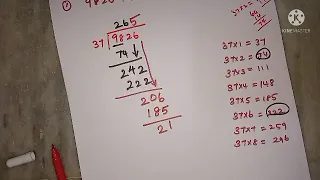 265
37 9826
74
242
222
206
185
21
37×1 = 37
37×2 = 74
37×3 = 111
37×4 = 148
37×5 = 185
37×6 = 222
37×7 = 259
37×8 = 296
KINEMASTER